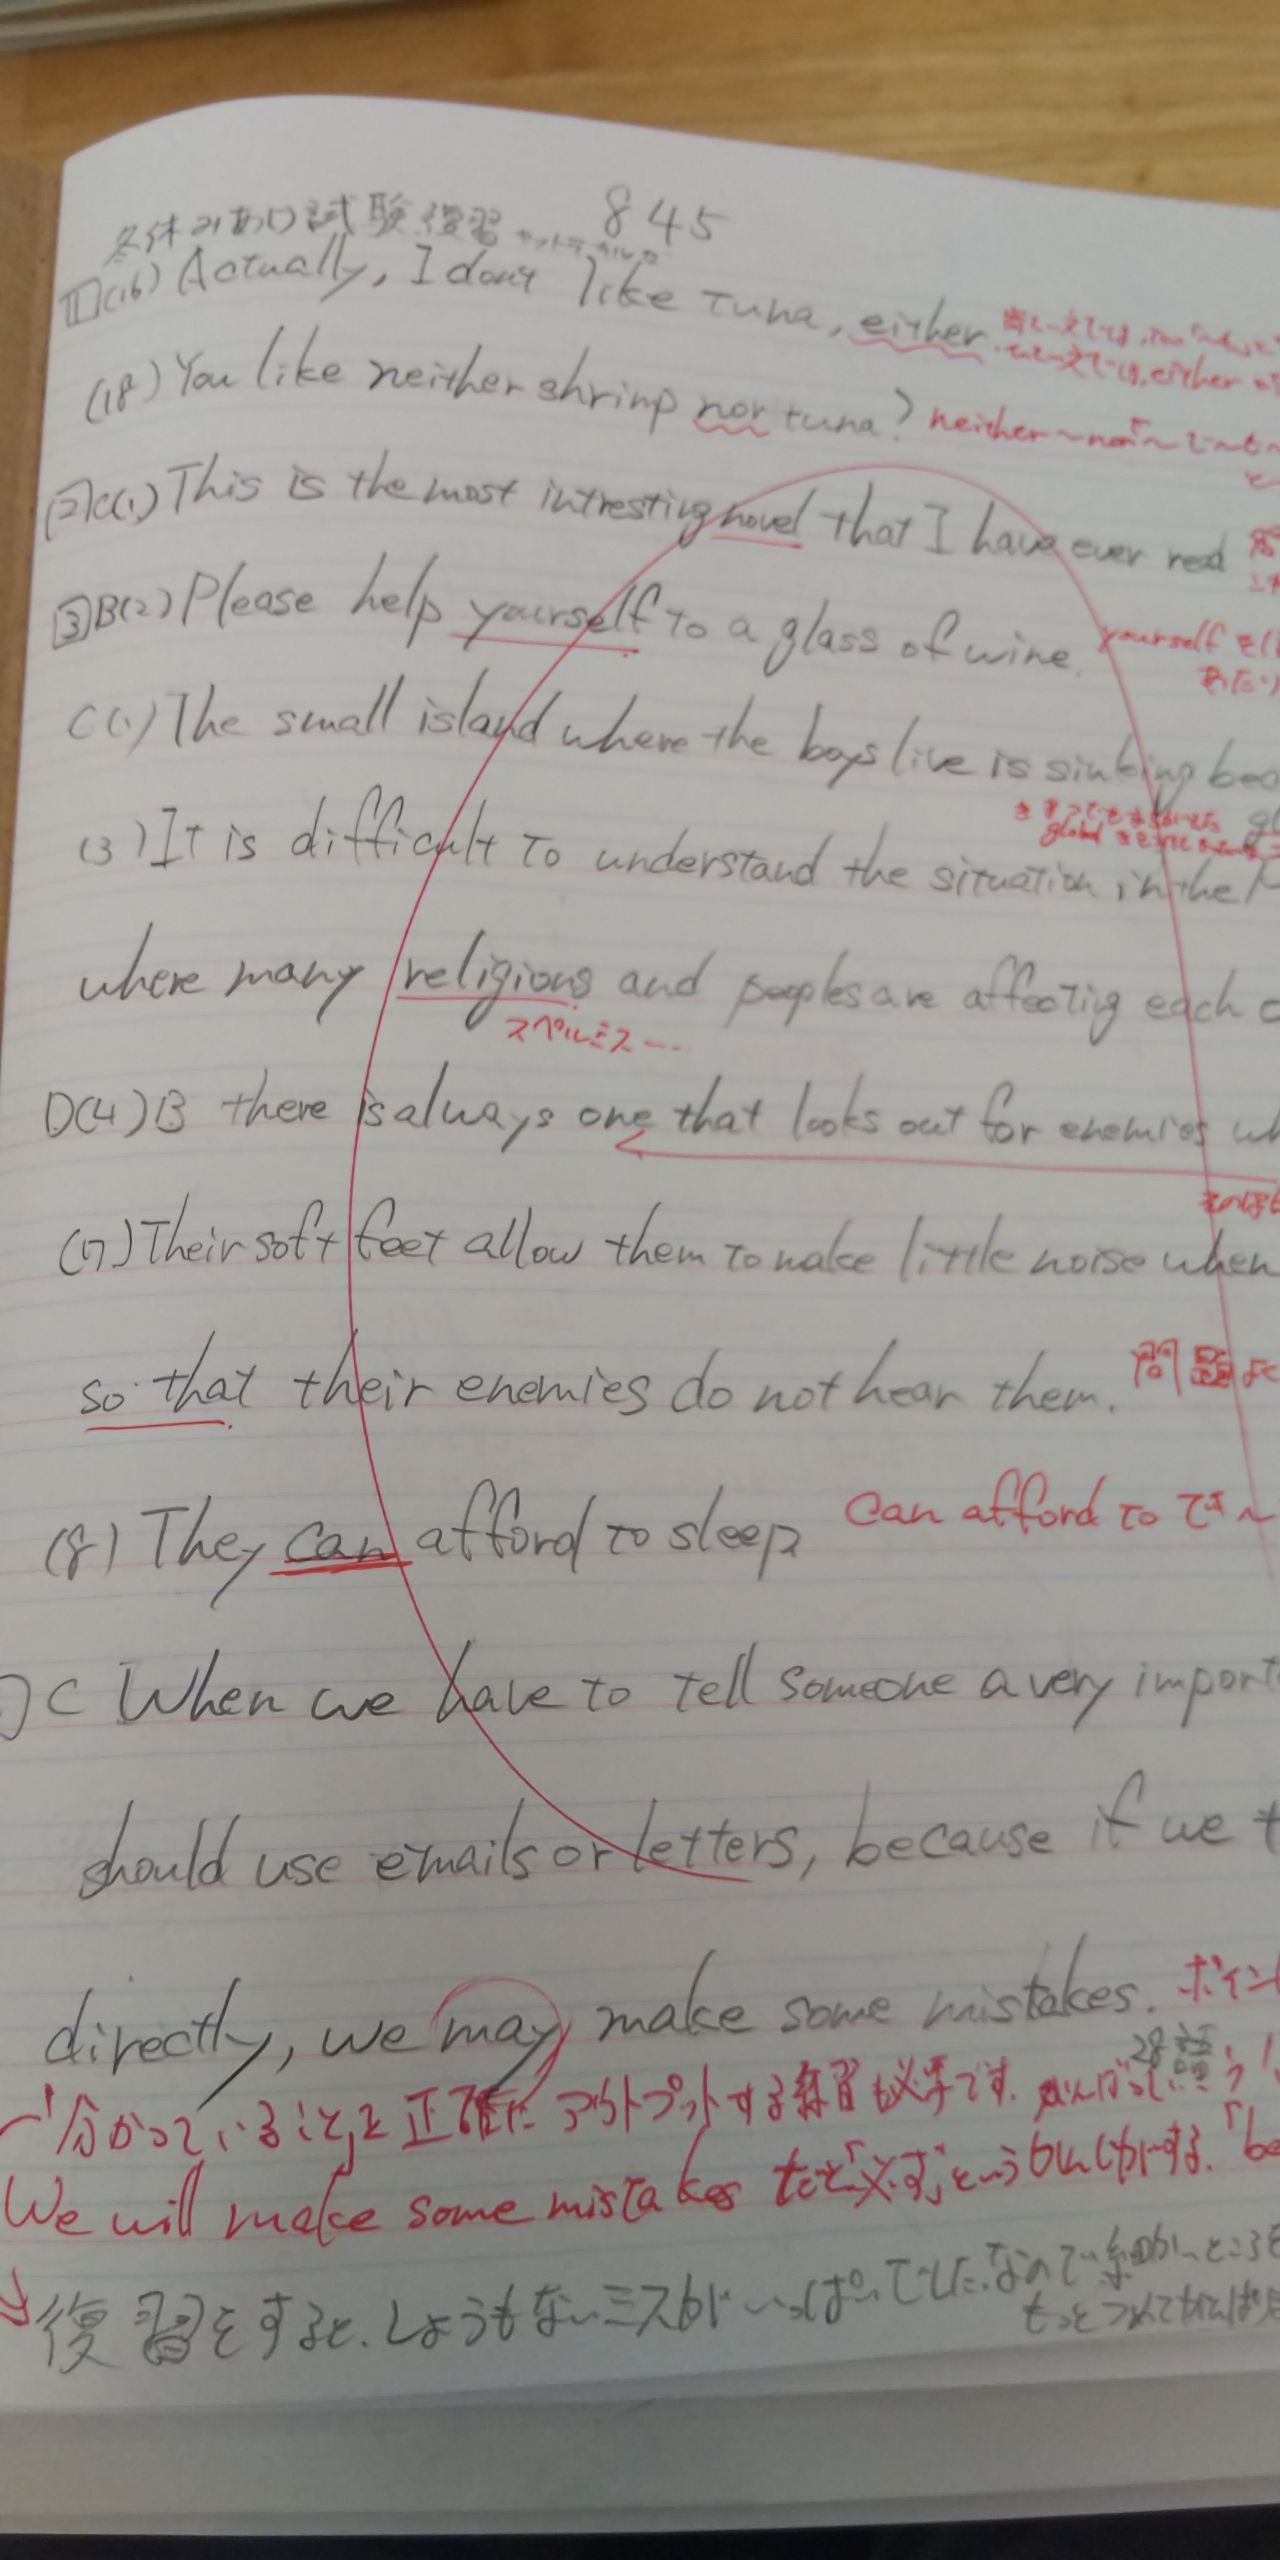 冬休みあけ試験復習 845
1(16) Actually, I don't like tuna, either.
(18) You like neither shrimp nor tuna? neither~nor~
2C(1) This is the most intresting novel that I have ever read
3B(2) Please help yourself to a glass of wine. yourself
C(1) The small island where the boys live is sinking bec
global
(3) It is difficult to understand the situation in the
where many religions and peoples are affecting each o
スペルミス…
D(4) B there is always one that looks out for enemies wh
(7) Their soft feet allow them to make little noise when
so that their enemies do not hear them. 問題
(8) They can afford to sleep can afford to で~
C When we have to tell someone a very import
should use emails or letters, because if we t
directly, we may make some mistakes. ポイン
28語
「分かっていること」を正確にアウトプットする練習も必要です。がんばっていこう!
We will make some mistakes だと「必ず」というかんじがする。「be
復習をすると、しょうもないミスがいっぱいでした。なので細かいところを
もっと